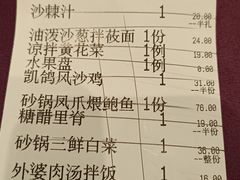 沙棘汁 1 20.00
--半扎
油泼沙葱拌莜面 1份 24.00
凉拌黄花菜 1例 19.00
水果盘 1例 0.00
凯鸽风沙鸡 1 31.00
--半份
砂锅凤爪煨鲍鱼 1份 76.00
糖醋里脊 1 19.00
--半份
砂锅三鲜白菜 1 36.00
--整份
外婆肉汤拌饭 1 16.00